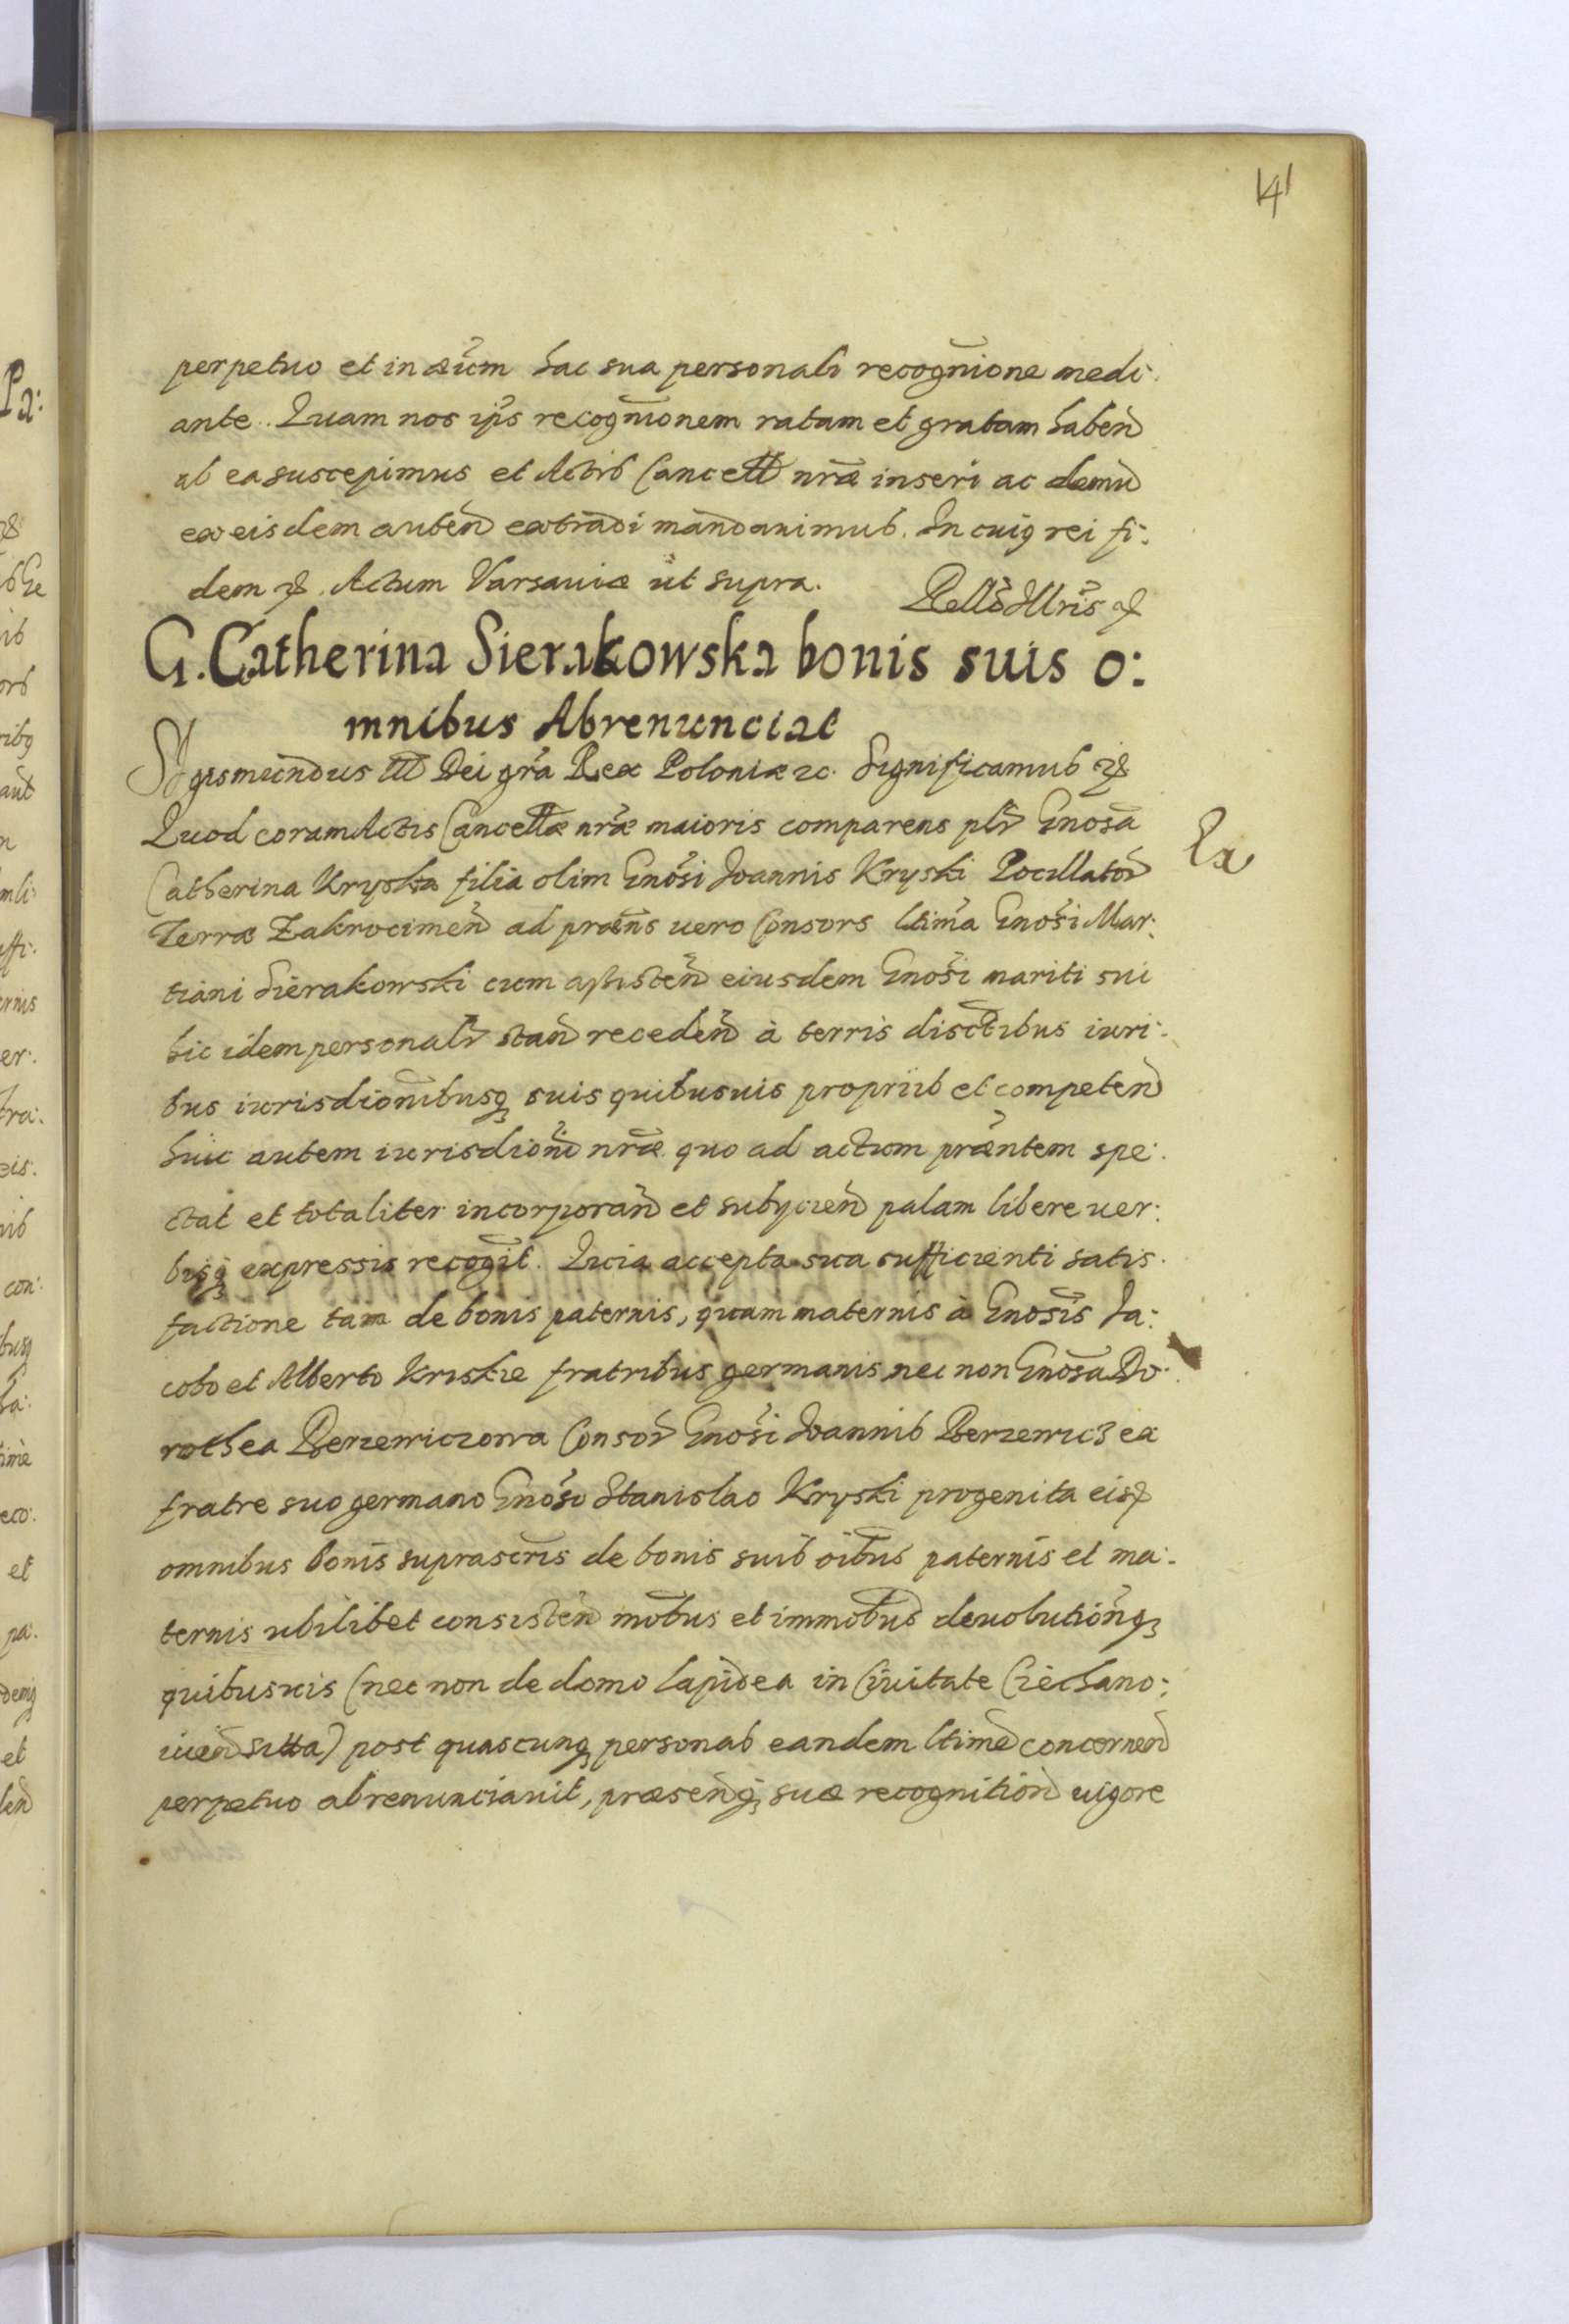 141
perpetuo et in æūm hac sua personali recognīone medi:
ante. Quam nos ip̄s recognīonem ratam et gratam haben̄
ab ea suscepimus et Actis Cancell nrǣ inseri ac demū
ex eisdem auten̄ extradi mandauimus. In cuiꝰ rei fi:
dem ꝛc. Actum Varsauiæ ut supra.
G. Catherina Sierakowska bonis suis o:
mnibus Abrenunciat
Sigismundus III Dei grā Rex Poloniæ ꝛc. Significamus ꝛc
Quod coram Actis Cancellæ nrǣ maioris comparens plr̄ Gnosā
Ex
Catherina Kryska filia olim Gnosī Joannis Kryski Pocillator̄
Terræ Zakrocimen̄ ad præn̄s uero Consors ltimā Gnosī Mar:
tiani Sierakowski cum assisten̄ eiusdem Gnosī mariti sui
hic idem personalr̄ stan̄ receden̄ à terris districtibus iuri:
bus iurisdionībusqꝫ suis quibusuis propriis et competen̄
huic autem iurisdionī nrǣ quo ad actum præntem spe:
ctat et totaliter incorporan̄ et subijcien̄ palam libere uer:
bisqꝫ expressis recogīt. Quia accepta sua sufficienti satis:
factione tam de bonis paternis, quam maternis à Gnosīs Ja:
cobo et Alberto Kriskie fratribus germanis nec non Gnosā Do:
rothea Berzewiczowa Consor̄ Gnosī Joannis Berzewicz ex
fratre suo germano Gnosō Stanislao Kryski progenita eisꝫ
omnibus bonis suprascrīs de bonis suis oībus paternis et ma:
ternis ubilibet consisten̄ mobūs et immobūs deuolutionqꝫ
quibusuis (nec non de domo lapidea in Ciuitate Ciechano:
uien̄ sitta) post quascunqꝫ personas eandem ltimē concernen̄
perpetuo abrenunciauit, præsenqꝫ suæ recognition̄ uigore